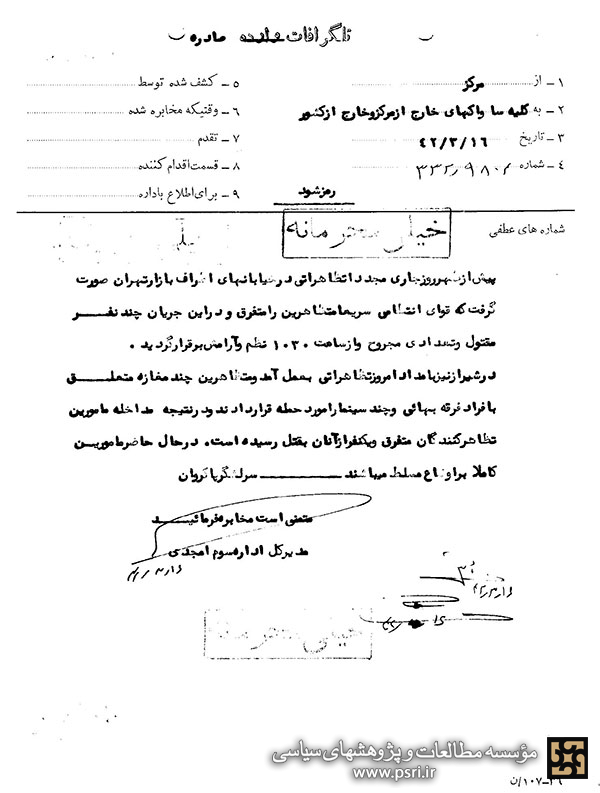 تلگرافات وارده صادره
۱ - از مرکز
۲ - به کلیه ساواکهای خارج ازمرکزوخارج ازکشور
۳ - تاریخ ۴۲/۳/۱۶
۴ - شماره
۵ - کشف شده توسط
۶ - وقتیکه مخابره شده
۷ - تقدم
۸ - قسمت اقدام کننده
۹ - برای اطلاع باداره
رمزشود
شماره های عطفی
خیلی محرمانه
پیش ازظهرروزجاری مجددا تظاهراتی درخیابانهای اطراف بازارتهران صورت
گرفت که قوای انتظامی سریعا متظاهرین رامتفرق و دراین جریان چند نفر
مقتول وتعدادی مجروح وازساعت ۱۰۳۰ نظم وآرامش برقرارگردید .
درشیرازنیزبامدادامروزتظاهراتی بعمل آمدومتظاهرین چند مغازه متعلق
بافراد فرقه بهائی وچند سینمارامورد حمله قراردادند ودرنتیجه مداخله مامورین
تظاهرکنندگان متفرق ویکنفرازآنان بقتل رسیده است . درحال حاضرمامورین
کاملا براوضاع مسلط میباشند ـــــــ سرلشگرپاکروان
متمنی است مخابره فرمائید
مدیرکل اداره سوم امجدی
خیلی محرمانه
مؤسسه مطالعات و پژوهشهای سیاسی
www.psri.ir
۳۶-۱۰۷/ن